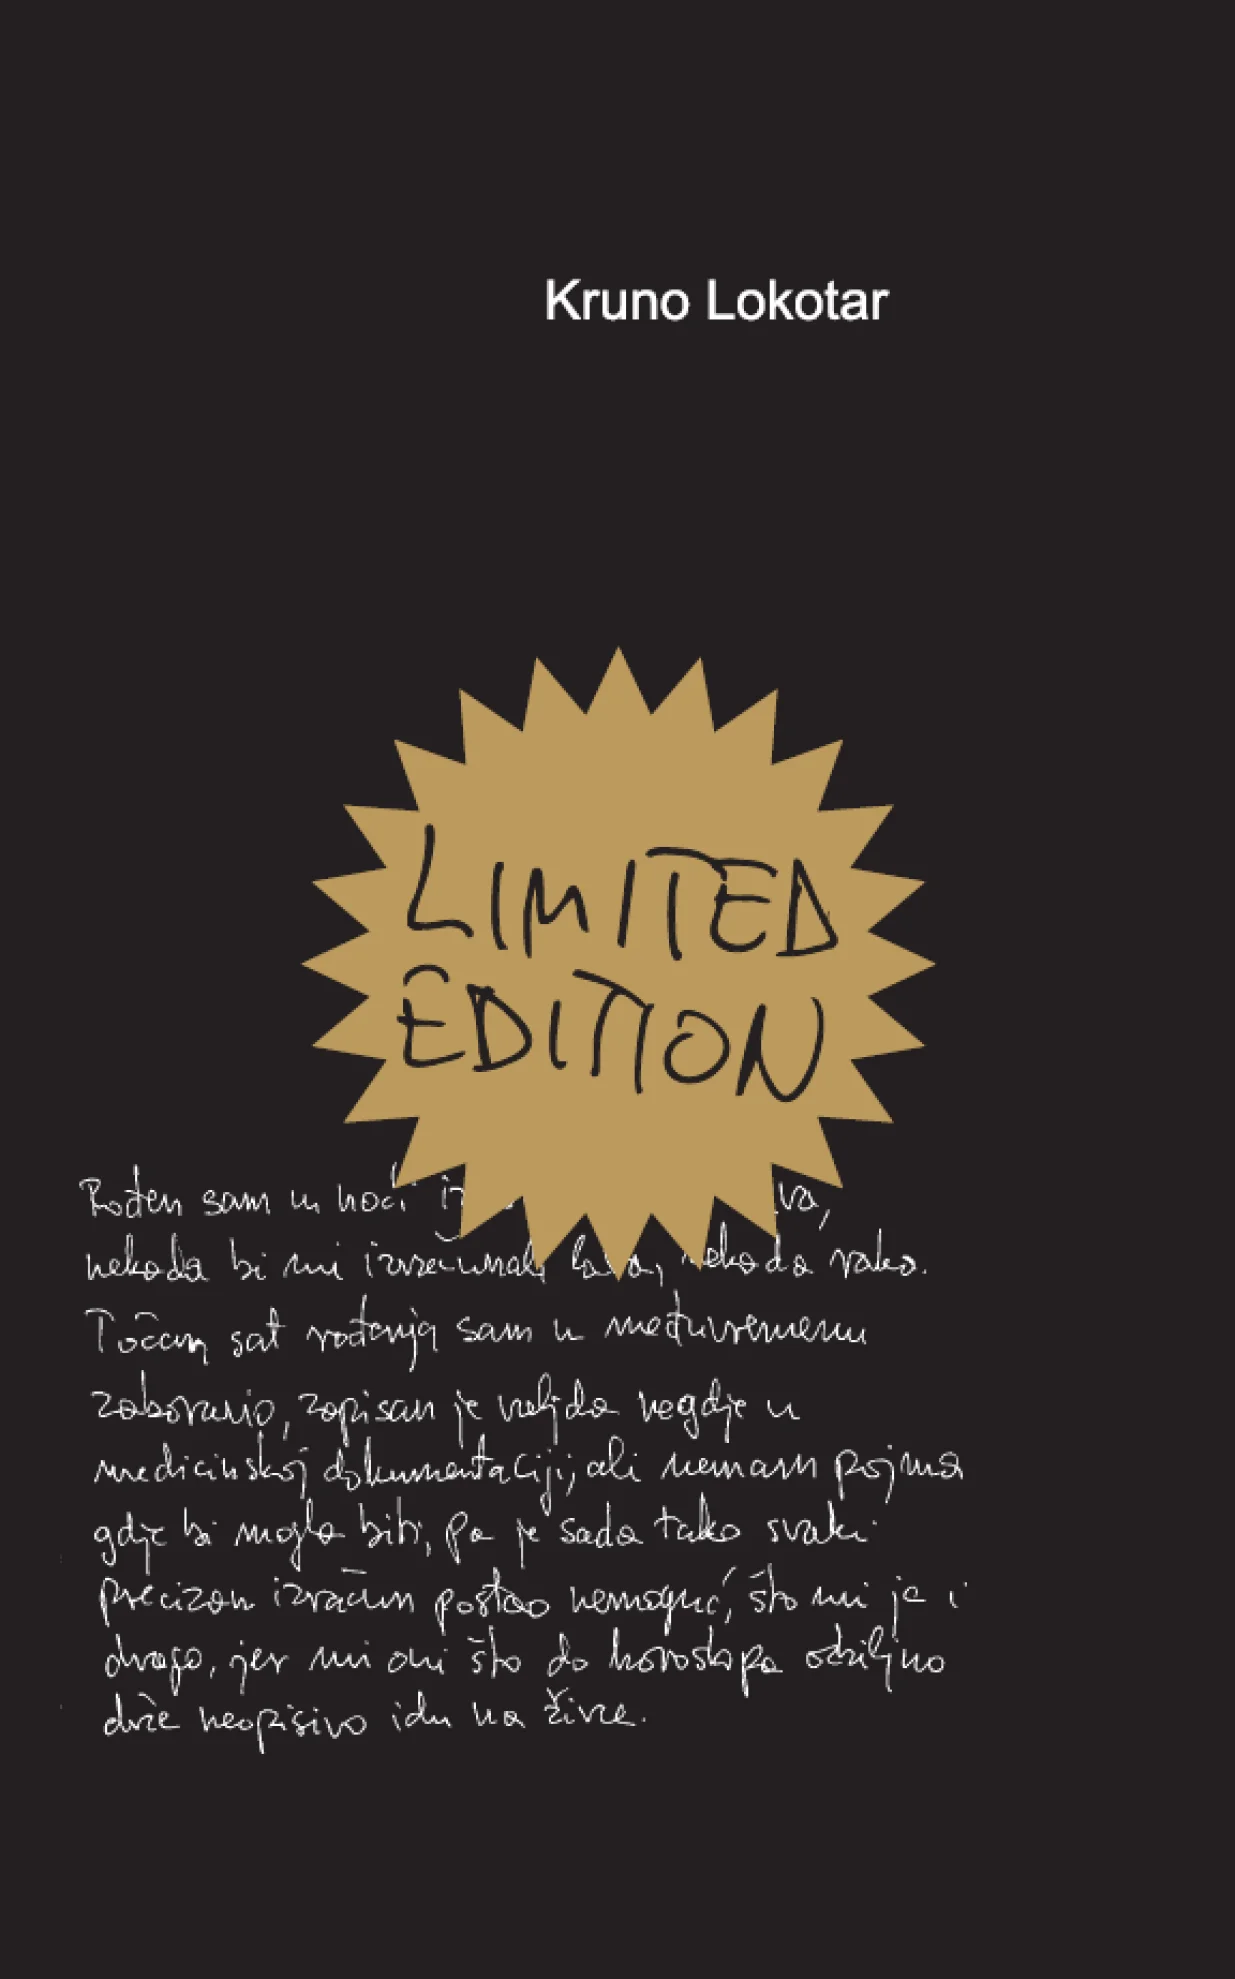 Kruno Lokotar
LIMITED
EDITION
Rođen sam u noći
nekada bi mi izračunali lava, nekada raka.
Točan sat rođenja sam u međuvremenu
zaboravio, zapisan je valjda negdje u
medicinskoj dokumentaciji, ali nemam pojma
gdje bi mogla biti, pa je sada tako svaki
precizan izračun postao nemoguć, što mi je i
drago, jer mi oni što do horoskopa ozbiljno
drže neopisivo idu na živce.